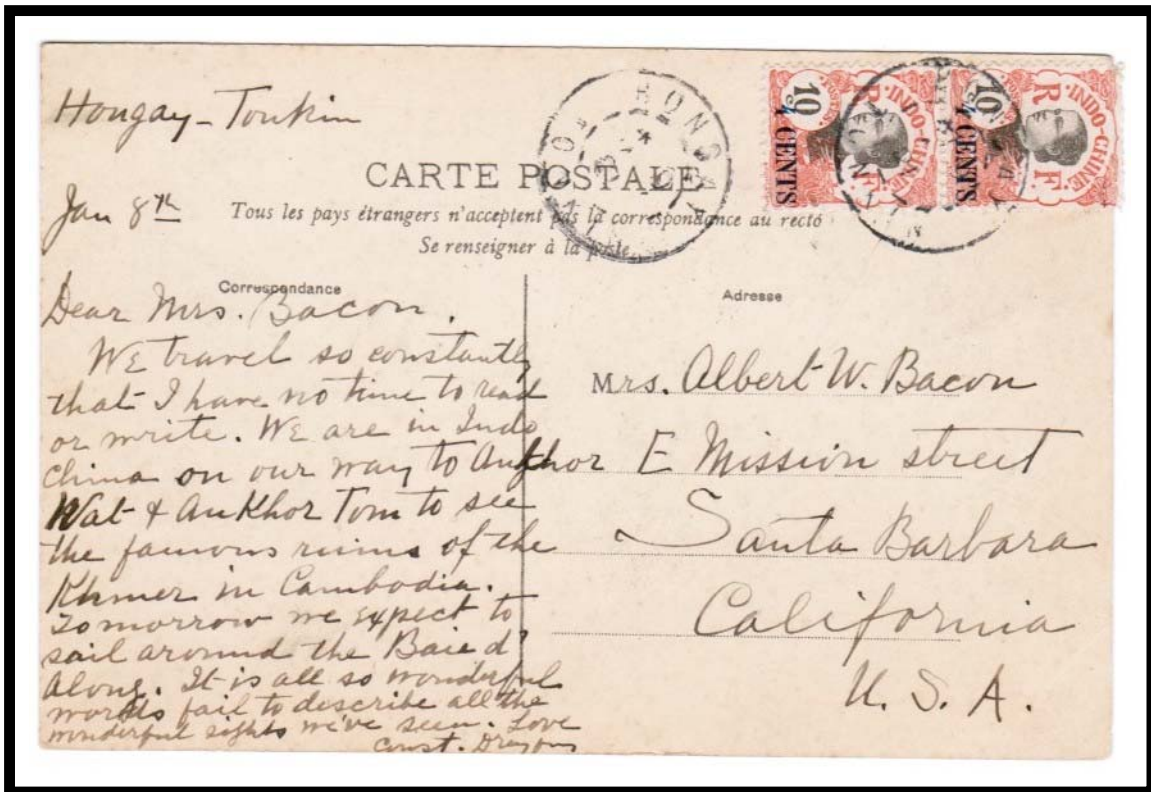 Hongay - Tonkin
Jan 8th
CARTE POSTALE
Tous les pays étrangers n'acceptent pas la correspondance au recto
Se renseigner à la poste.
Correspondance
Dear Mrs. Bacon.
We travel so constantly
that I have no time to read
or write. We are in Indo
China on our way to Ankhor
Wat & Ankhor Tom to see
the famous ruins of the
Khmer in Cambodia.
Tomorrow we expect to
sail around the Baie d'
Along. It is all so wonderful
words fail to describe all the
wonderful sights we've seen. Love
Const.
Adresse
Mrs. Albert W. Bacon
E Mission street
Santa Barbara
California
U.S.A.
HONGAY
10
4 CENTS
INDO-CHINE
R F
10
4 CENTS
INDO-CHINE
R F